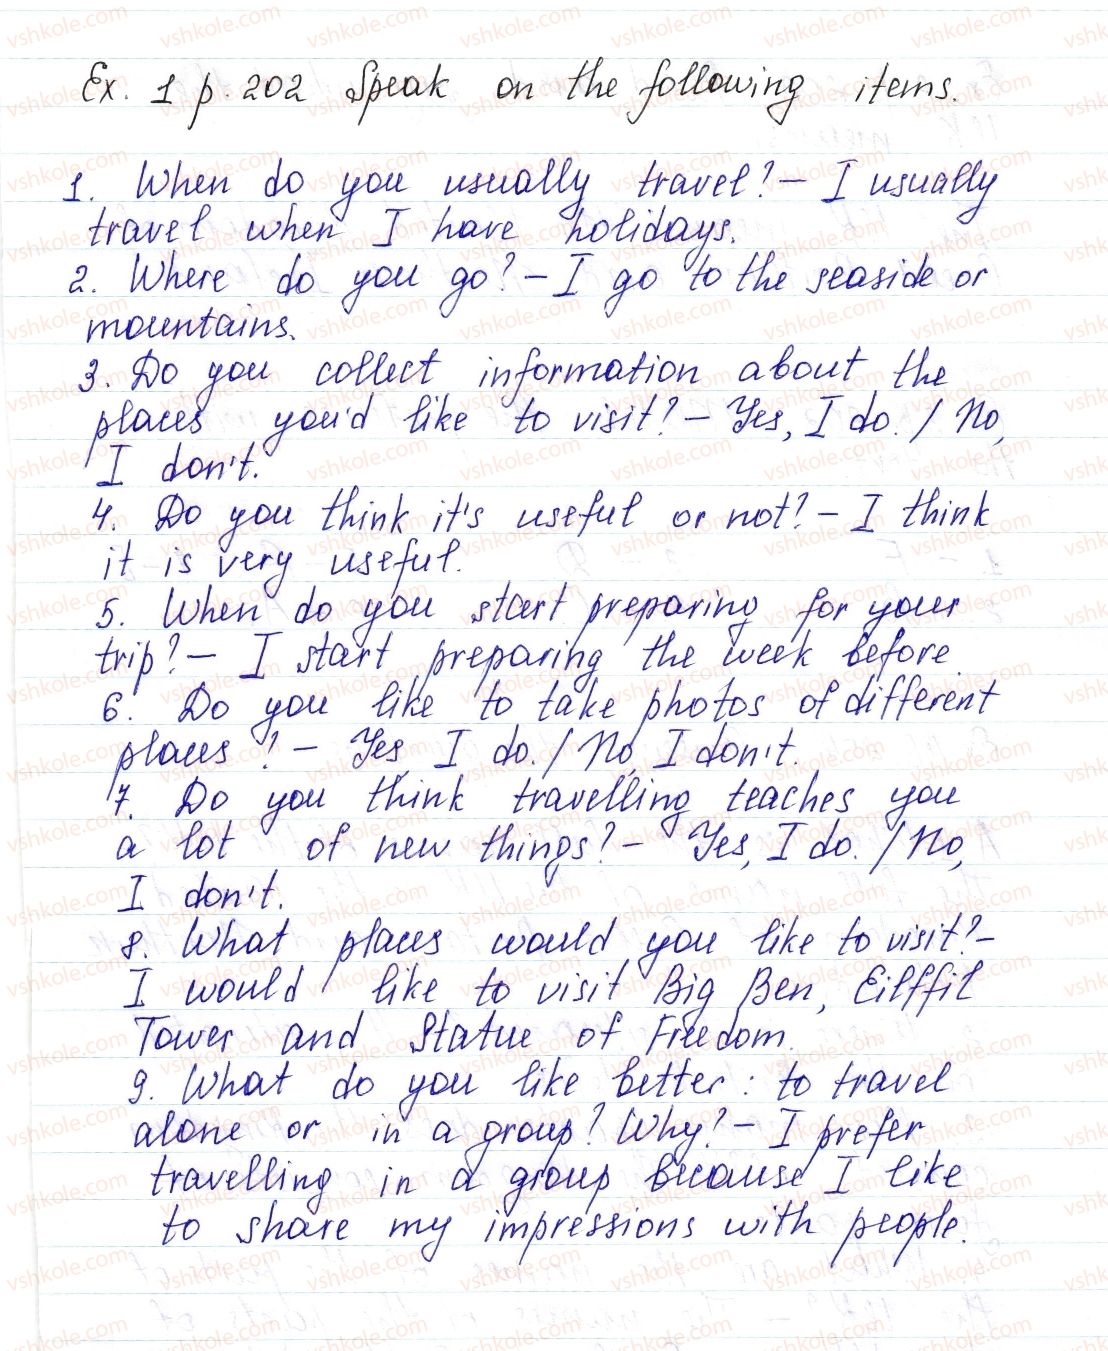 Ex. 1 p. 202 Speak on the following items.
1. When do you usually travel? – I usually
travel when I have holidays.
2. Where do you go? – I go to the seaside or
mountains.
3. Do you collect information about the
places you'd like to visit? – Yes, I do. / No,
I don't.
4. Do you think it's useful or not? – I think
it is very useful.
5. When do you start preparing for your
trip? – I start preparing the week before
6. Do you like to take photos of different
places? – Yes, I do. / No, I don't.
7. Do you think travelling teaches you
a lot of new things? – Yes, I do. / No,
I don't.
8. What places would you like to visit? –
I would like to visit Big Ben, Eilffil
Tower and Statue of Freedom.
9. What do you like better: to travel
alone or in a group? Why? – I prefer
travelling in a group because I like
to share my impressions with people.
vshkole.com